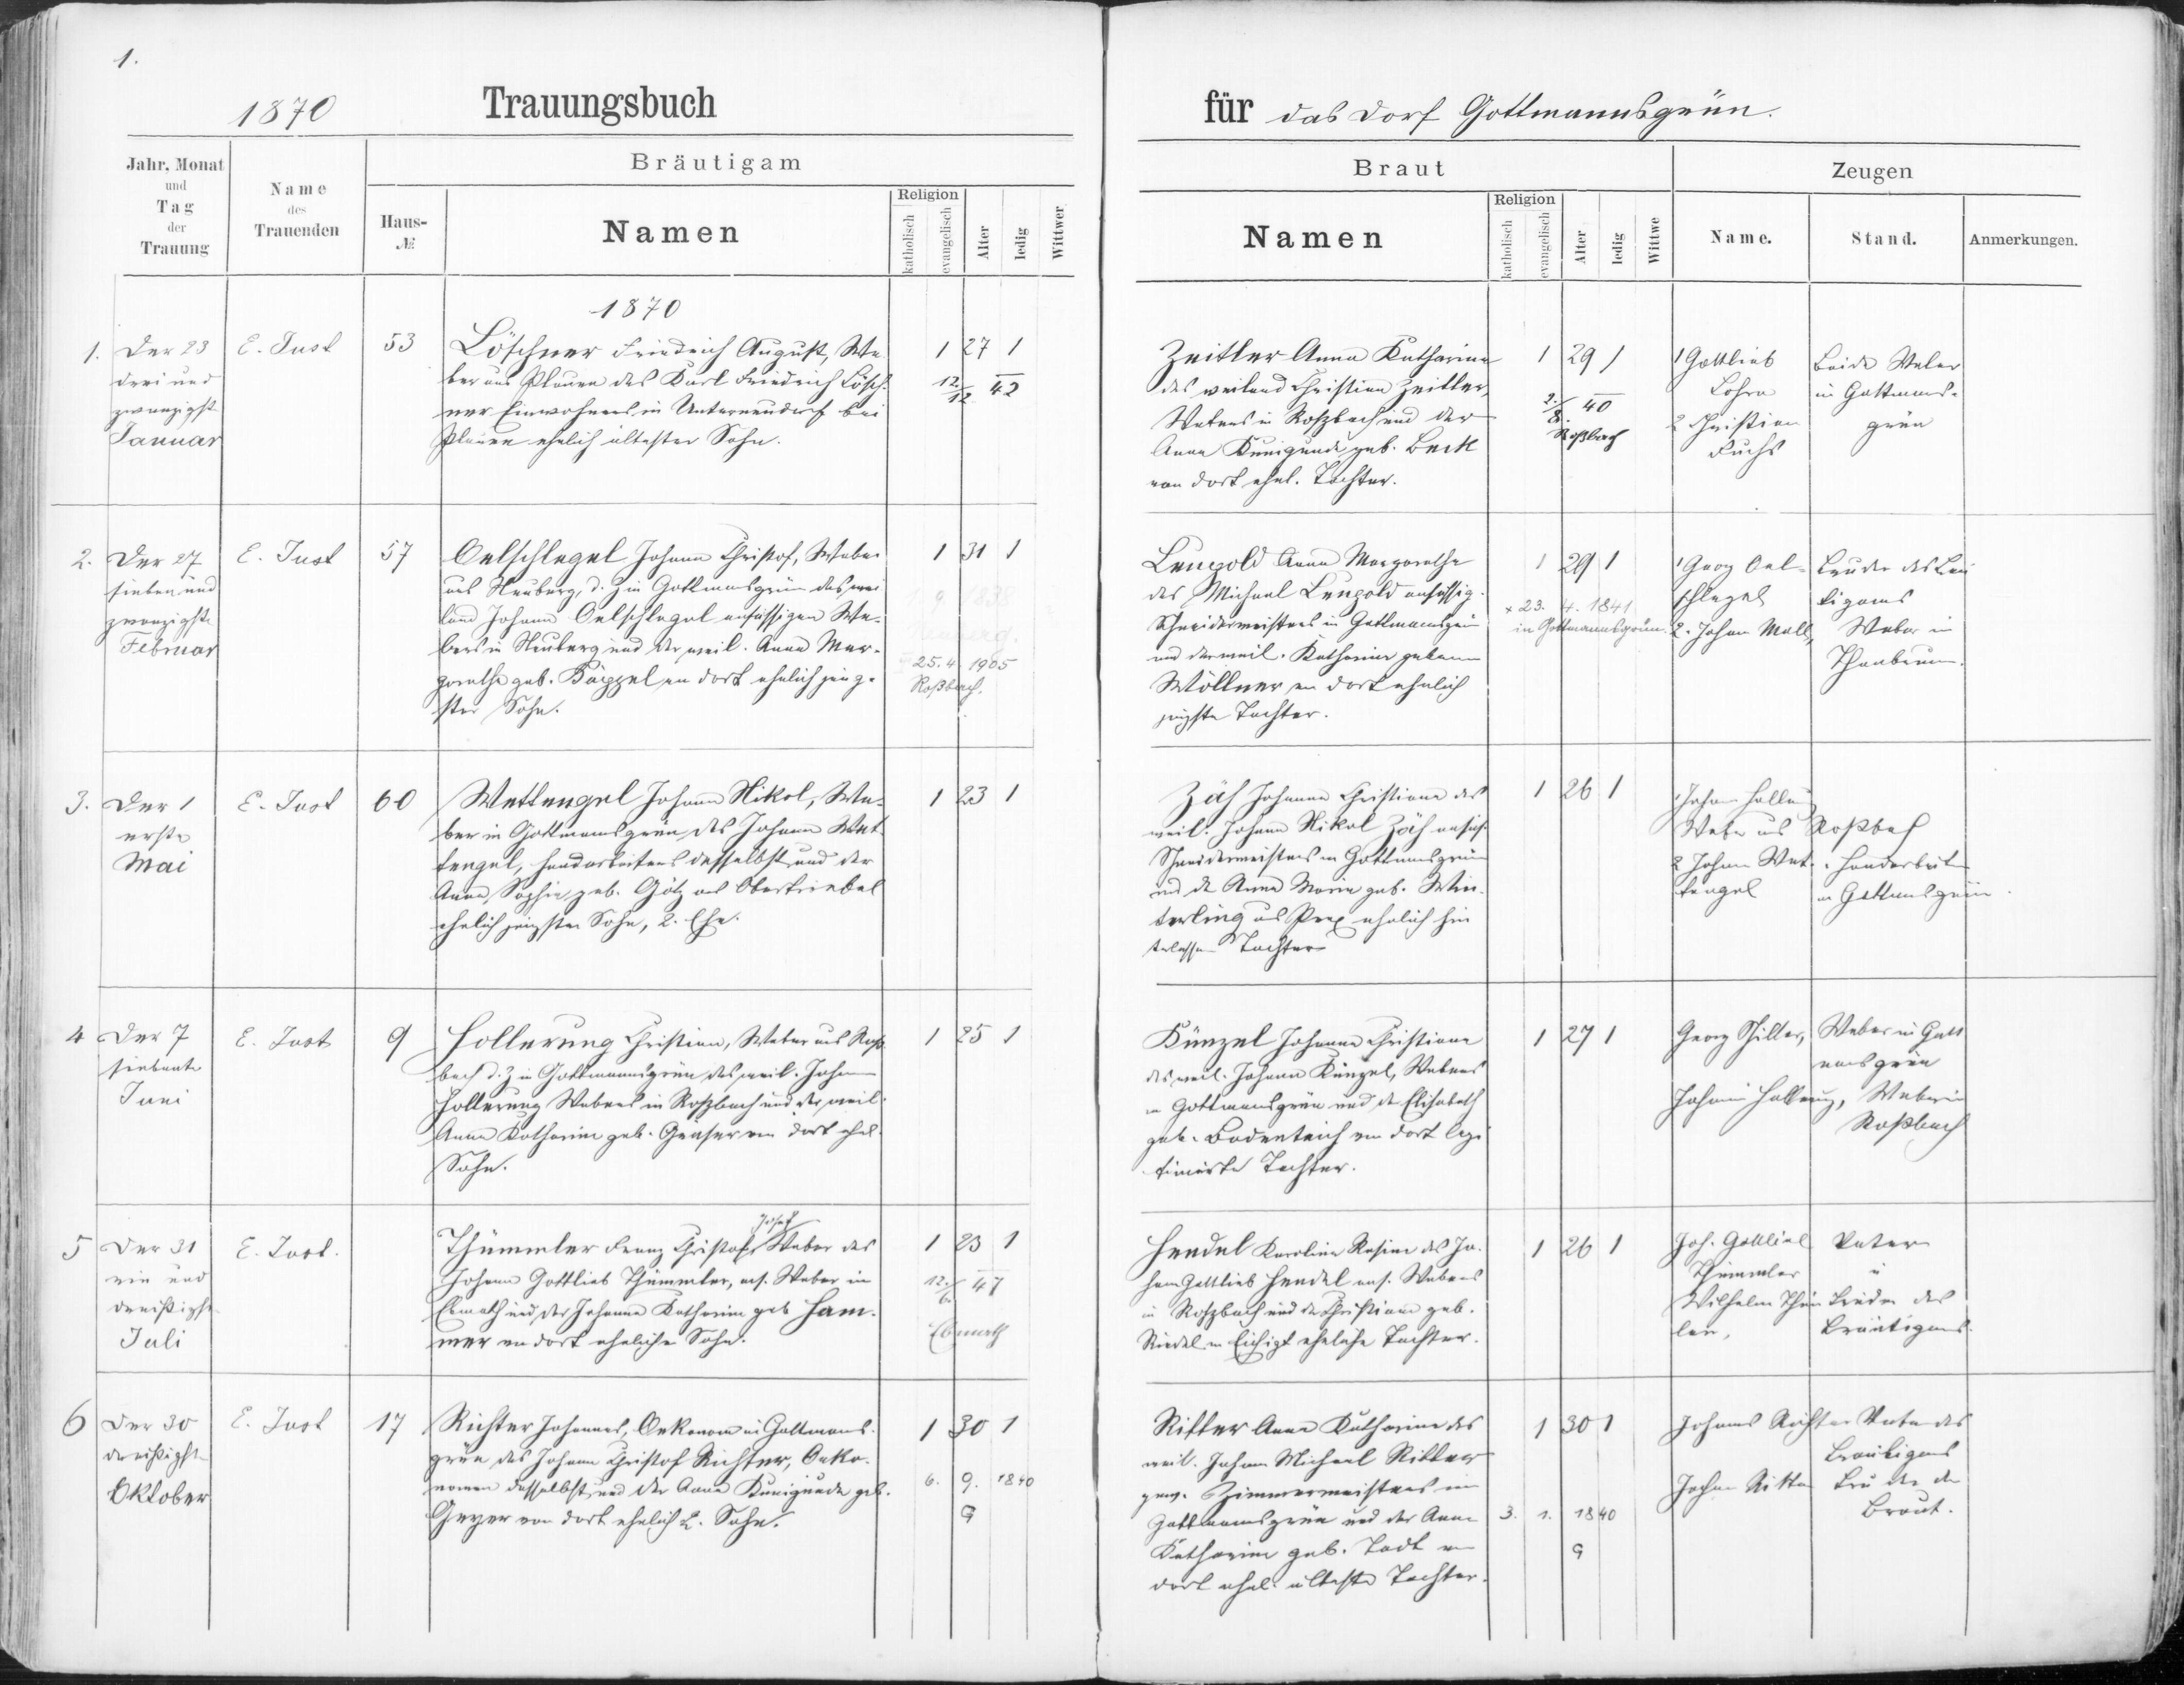 1.
1870 Trauungsbuch
für das Dorf Gottmannsgrün.
Jahr, Monat und Tag der Trauung
Name des Trauenden
Bräutigam
Haus-№
Namen
Religion
katholisch
evangelisch
Alter
ledig
Wittwer
Braut
Namen
Religion
katholisch
evangelisch
Alter
ledig
Wittwe
Zeugen
Name.
Stand.
Anmerkungen.
1870
1.
Der 23
drei und
zwanzigste
Januar
E. Just
53
Löschner Friedrich August, We-
ber aus Plauen des Karl Friedrich Lösch-
ner Einwohners in Unterneudorf bei
Plauen ehelich ältester Sohn.
1 27 1
12./12. 42
Zeitler Anna Katharina
des weiland Christian Zeitler,
Webers in Roßbach und der
Anna Kunigunde geb. Beck
von dort ehel. Tochter.
1 29 1
2./8. 40
Roßbach
1 Gottlieb
Lohra
2 Christian
Fuchs
beide Weber
in Gottmanns-
grün
2.
Der 27
sieben und
zwanzigste
Februar
E. Just
57
Oelschlegel Johann Christof, Weber
aus Neuberg, d. Z. in Gottmansgrün des wei
land Johann Oelschlegel ansässigen We-
bers in Neuberg und der weil. Anna Mar-
garethe geb. Käppel von dort ehelich jüng-
ster Sohn.
1 31 1
25. 4. 1905
Roßbach.
Leupold Anna Margarethe
des Michael Leupold ansässig.
Schneidermeisters in Gottmannsgrün
und der weil. Katharine geborene
Wöllner von dort ehelich
jüngste Tochter.
1 29 1
* 23. 4. 1841
in Gottmannsgrün.
1 Georg Oel-
schlegel
2. Johann Moll,
Bruder des Bräu
tigams
Weber in
3.
Der 1
erste
Mai
E. Just
60
Wettengel Johann Nikol, We-
ber in Gottmannsgrün des Johann Wet-
tengel, Handarbeiters daselbst und der
Anna Sophie geb. Götz aus Obertriebel
ehelich jüngster Sohn, 2. Ehe.
1 23 1
Zäh Johanna Christiana des
weil. Johann Nikol Zäh ansäß.
Schneidermeisters in Gottmansgrün
und der Anna Maria geb. Win-
terling aus Prex ehelich hin
terlassene Tochter
1 26 1
Weber aus Roßbach
2 Johann Wet-
tengel
Handarbeiter
in Gottmansgrün.
4
Der 7
siebente
Juni
E. Just
9
Hollerung Christian, Weber aus Roß-
bach d. Z. in Gottmannsgrün des weil. Johann
Hollerung Webers in Roßbach und der weil.
Anna Katharine geb. Gräser von dort ehel.
Sohn.
1 25 1
Künzel Johanna Christiane
des weil. Johann Künzel, Webers
in Gottmansgrün und der Elisabeth
geb. Bodenteich von dort legi
timirte Tochter.
1 27 1
Georg Schiller,
Weber in Gott
mansgrün
Johann Hollerung, Weber in
Roßbach
5
Der 31
ein und
dreißigste
Juli
E. Just.
Josef
Thümmler Franz Christof Weber des
Johann Gottlieb Thümmler, ans. Weber in
Ebmath und der Johanna Katharine geb Ham-
mer von dort ehelicher Sohn.
1 23 1
12./6. 47
Ebmath
Hendel Karoline Rosine des Jo-
hann Gottlieb Hendel ans. Webers
in Roßbach und der Christiane geb.
Riedel in Eichigt eheliche Tochter.
1 26 1
Joh. Gottlieb
Thümmler
Vater
u
Bruder des
Bräutigams.
6
Der 30
dreißigste
Oktober
E. Just
17
Richter Johannes, Oekonom in Gottmans-
grün des Johann Christof Richter, Oeko-
nomen daselbst und der Anna Kunigunde geb.
Geyer von dort ehelich 2. Sohn.
1 30 1
6. 9. 1840
G
Ritter Anna Katharine des
weil. Johann Michael Ritter
gew. Zimmermeisters in
Gottmannsgrün und der Anna
Katharine geb. Todt von
dort ehel. älteste Tochter.
1 30 1
3. 1. 1840
G
Johannes Richter Vater des
Bräutigams
Johann Ritter Bruder der
Braut.